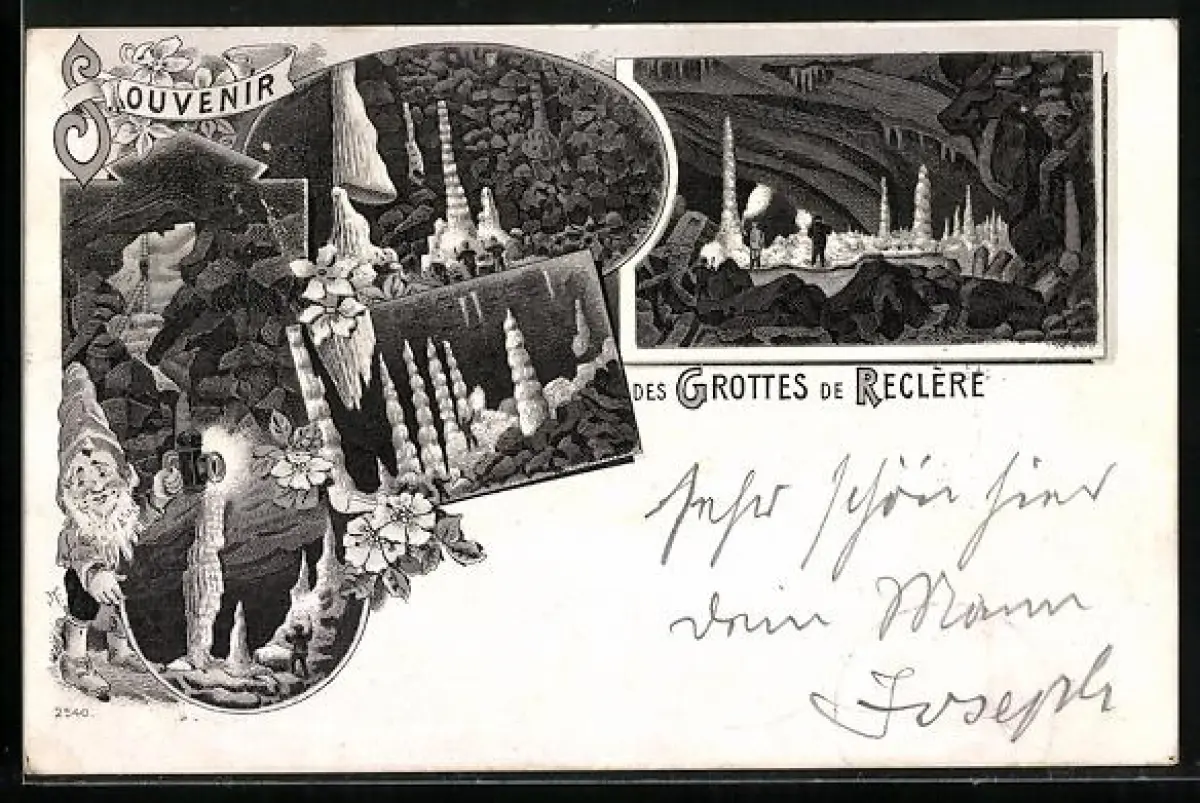 SOUVENIR
DES GROTTES DE RECLÈRE
Sehr schön hier
dein Mann
Joseph
2540.